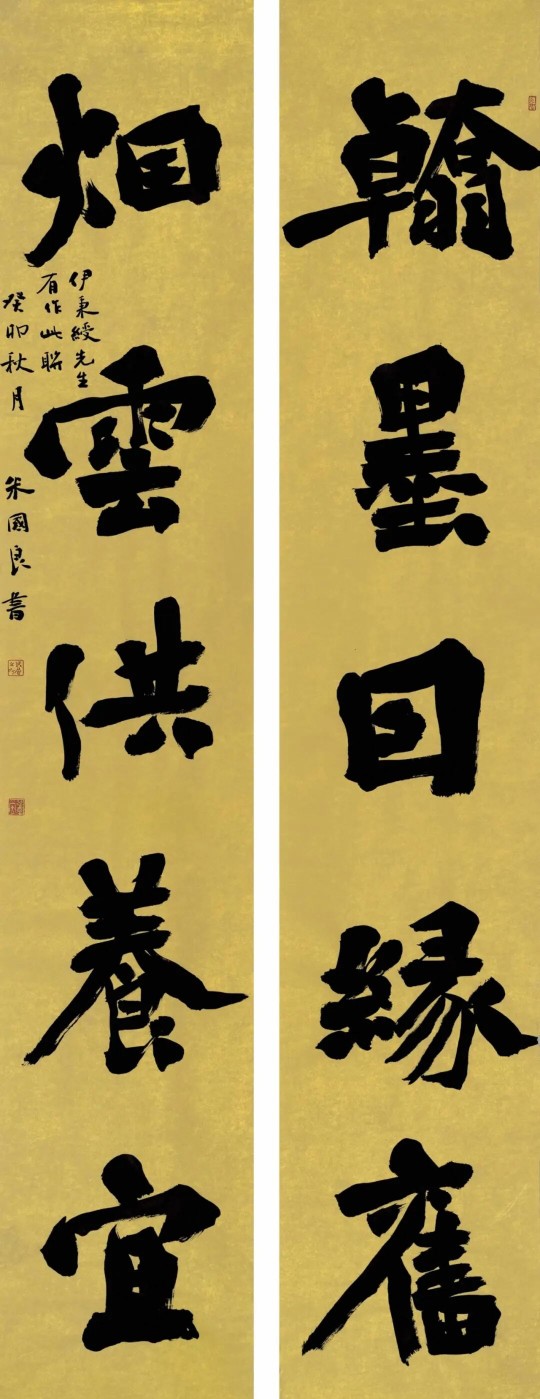 翰墨囙緣舊
烟雲供養宜
伊秉綬先生
有作此聨
癸卯秋月 朱國良書